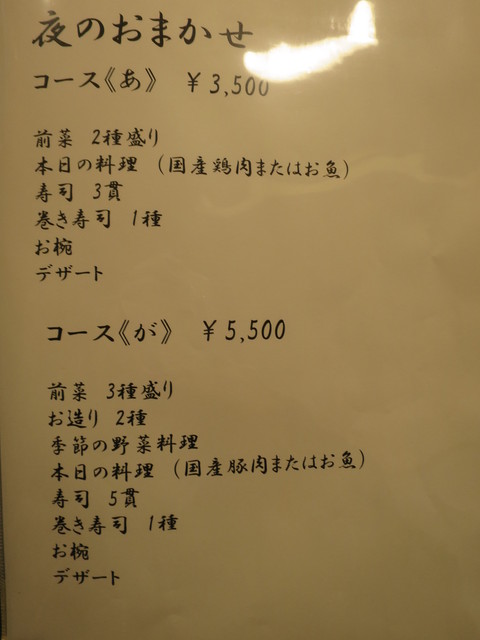 夜のおまかせ
コース《あ》 ¥3,500
前菜 2種盛り
本日の料理 (国産鶏肉またはお魚)
寿司 3貫
巻き寿司 1種
お椀
デザート
コース《が》 ¥5,500
前菜 3種盛り
お造り 2種
季節の野菜料理
本日の料理 (国産豚肉またはお魚)
寿司 5貫
巻き寿司 1種
お椀
デザート